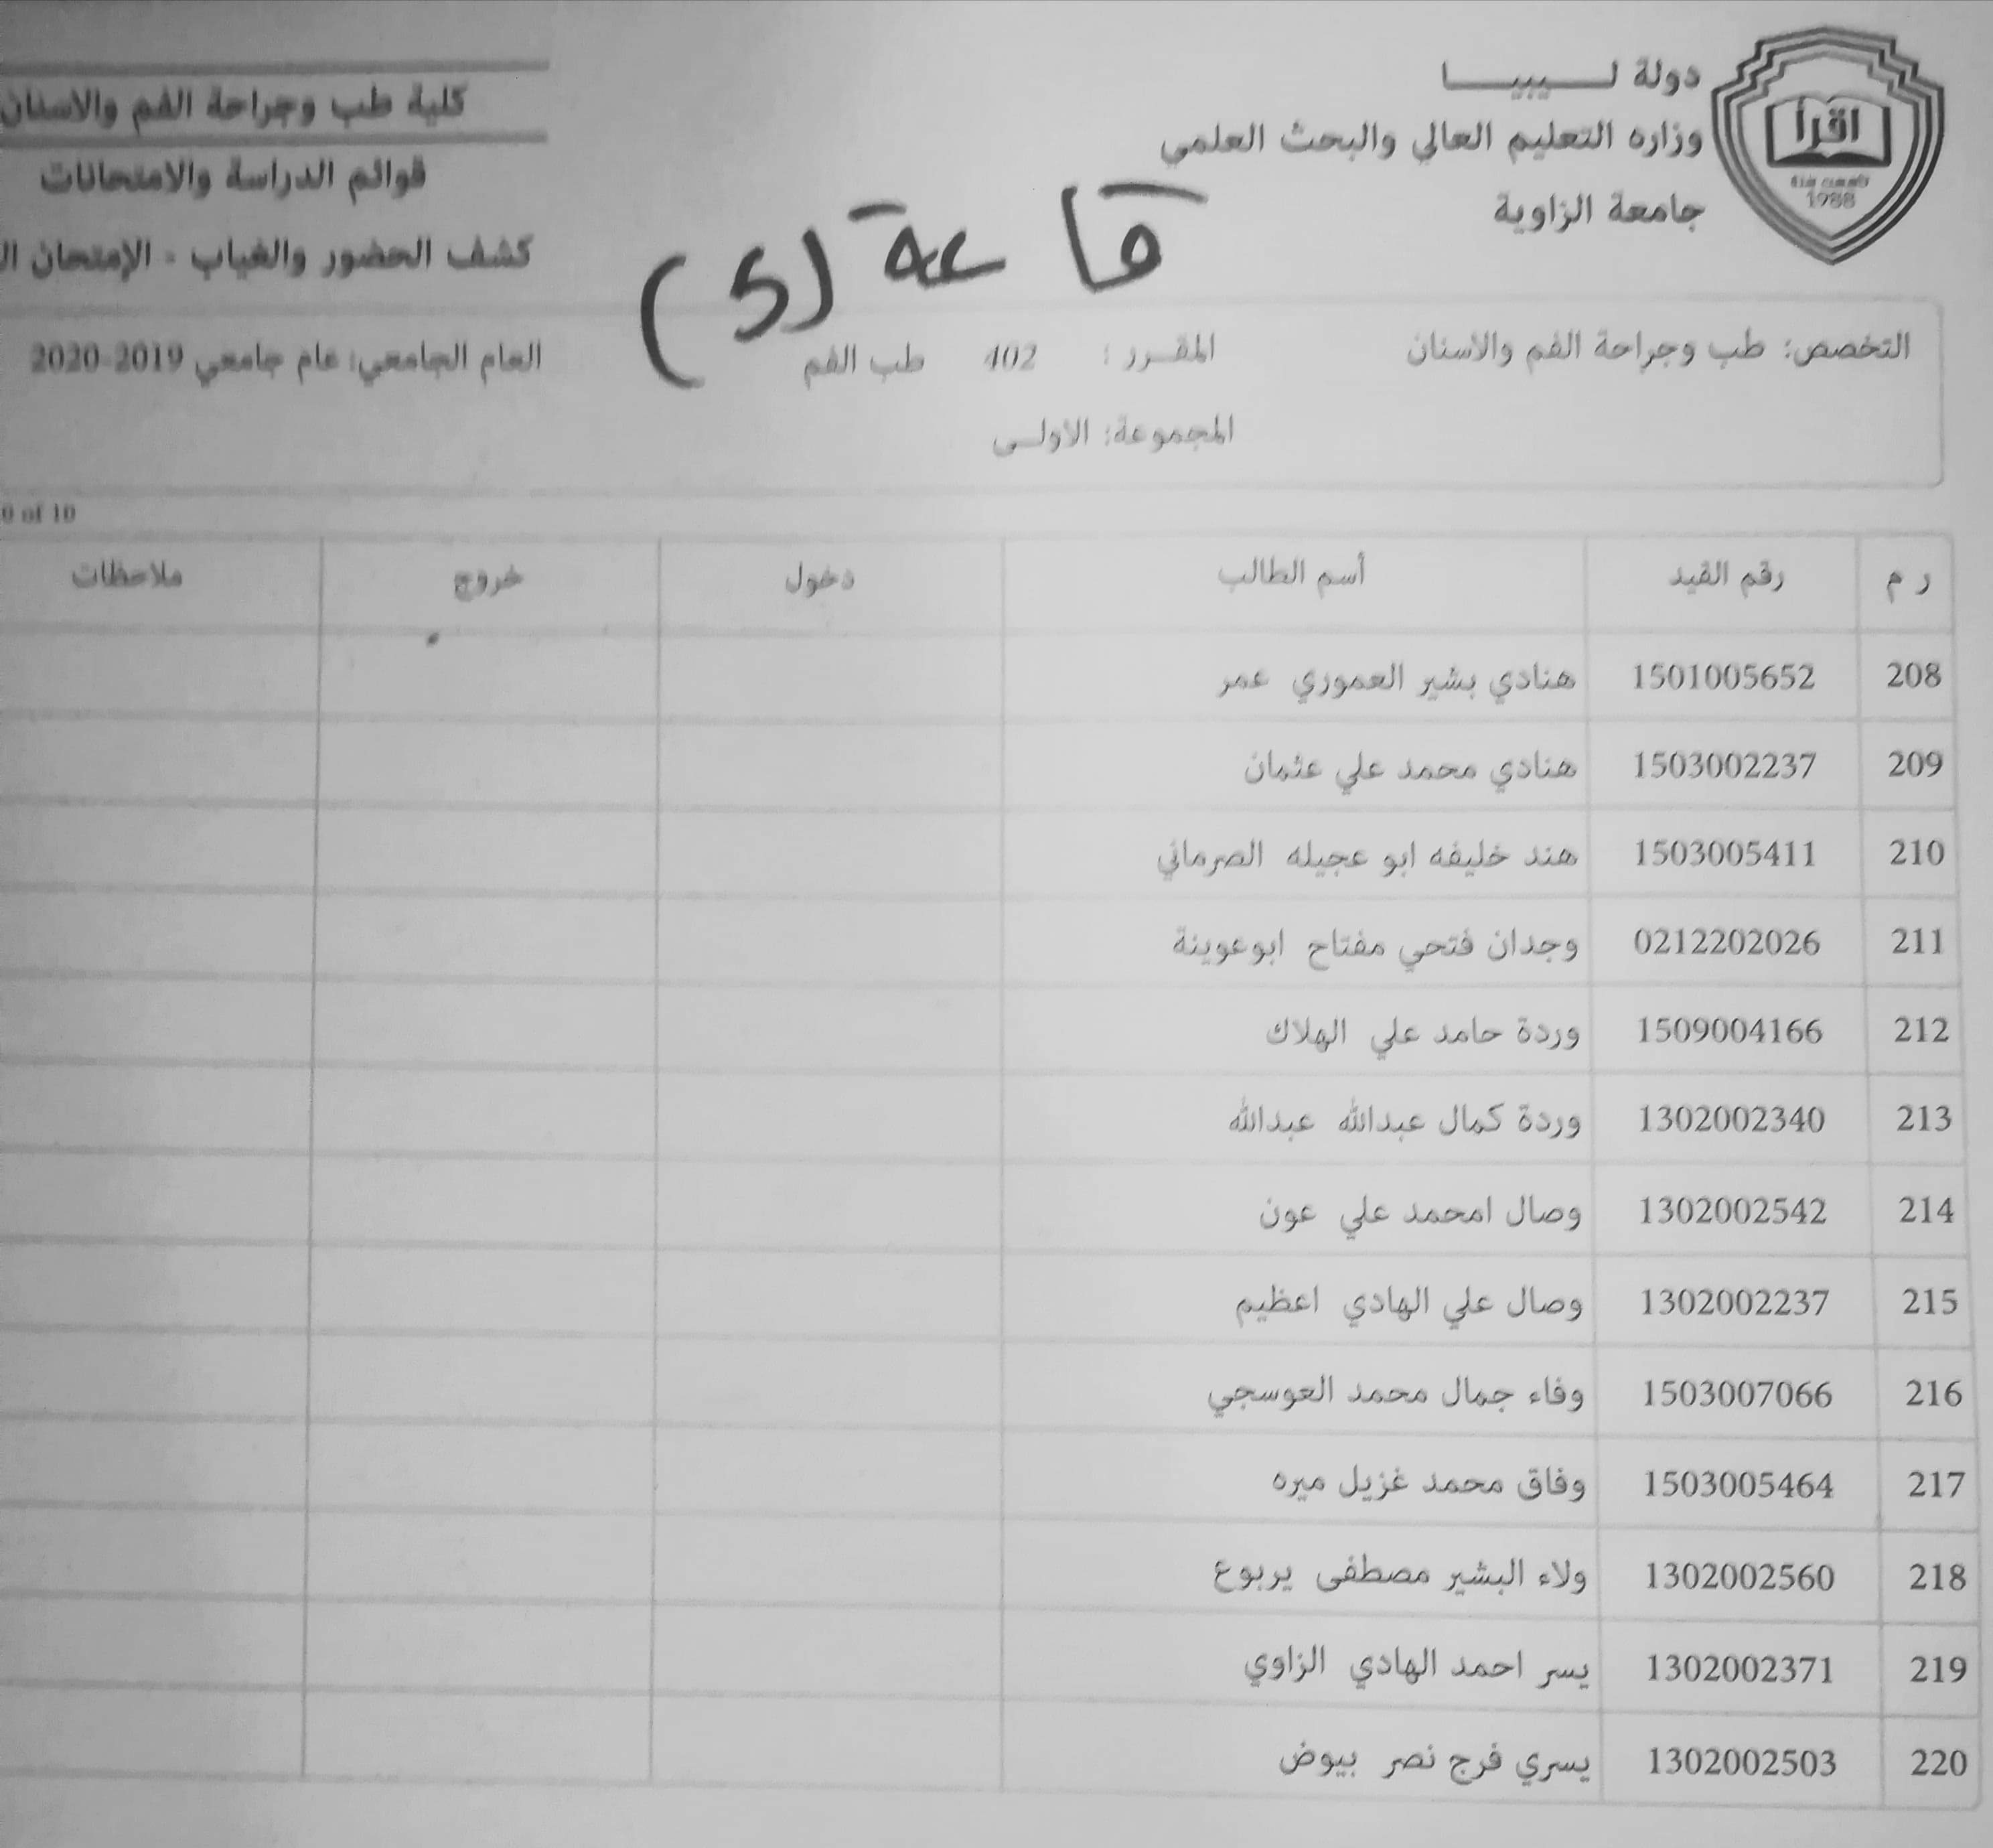 دولة لـــيبيـــا
وزاره التعليم العالي والبحث العلمي
جامعة الزاوية
اقرأ
1988
كلية طب وجراحة الفم والاسنان
قوائم الدراسة والامتحانات
كشف الحضور والغياب - الإمتحان
قاعة (5)
التخصص: طب وجراحة الفم والاسنان المقـرر : 402 طب الفم العام الجامعي: عام جامعي 2019-2020
المجموعة: الاولـى
of 10
ر م رقم القيد أسم الطالب دخول خروج ملاحظات
208 1501005652 هنادي بشير العموري عمر
209 1503002237 هنادي محمد علي عثمان
210 1503005411 هند خليفه ابو عجيله الصرماني
211 0212202026 وجدان فتحي مفتاح ابوعوينة
212 1509004166 وردة حامد علي الهلاك
213 1302002340 وردة كمال عبدالله عبدالله
214 1302002542 وصال امحمد علي عون
215 1302002237 وصال علي الهادي اعظيم
216 1503007066 وفاء جمال محمد العوسجي
217 1503005464 وفاق محمد غزيل ميره
218 1302002560 ولاء البشير مصطفى يربوع
219 1302002371 يسر احمد الهادي الزاوي
220 1302002503 يسري فرج نصر بيوض